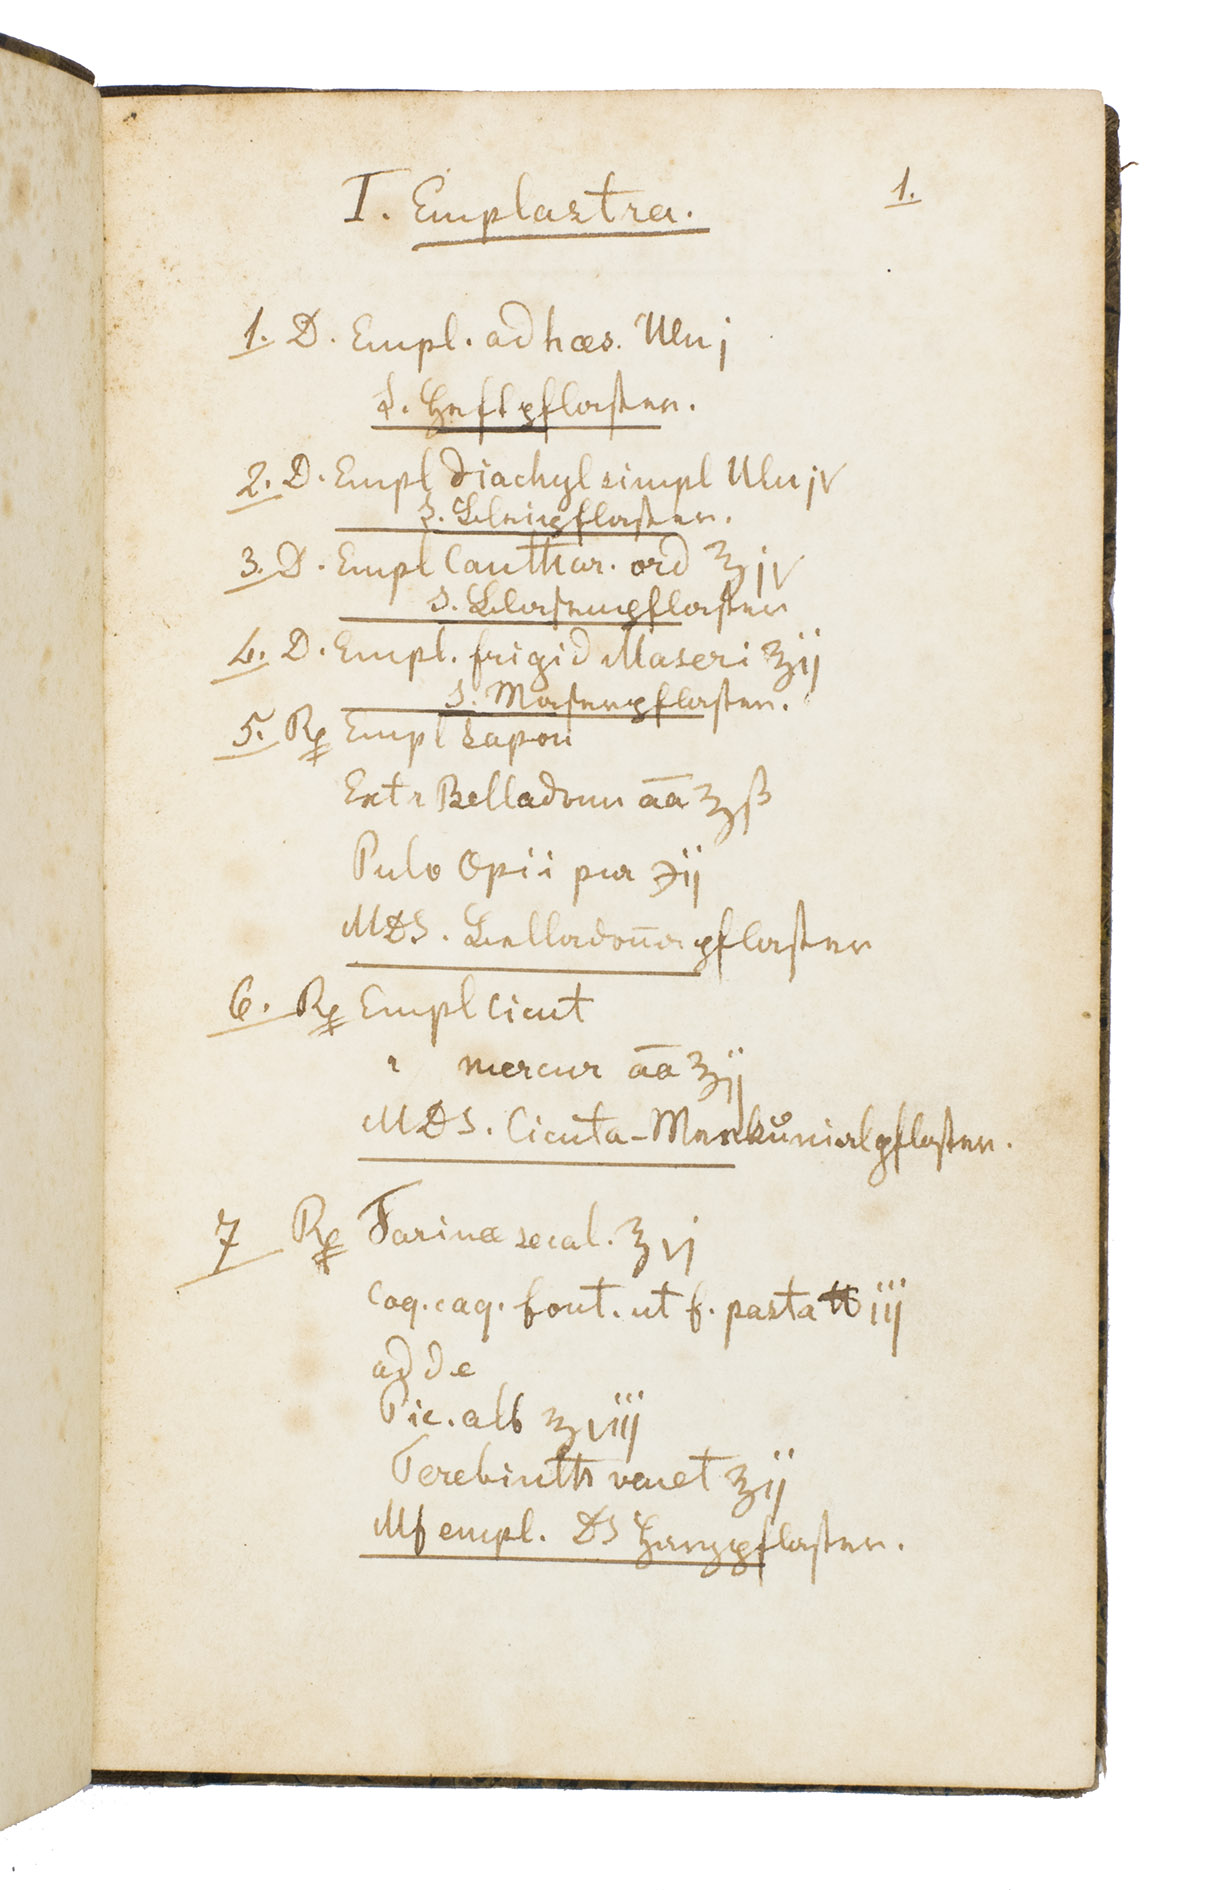 1.
I. Emplastra.
1. D. Empl. adhæs. Ulnj
S. Heftpflaster.
2. D. Empl diachyl simpl Ulnjv
S. Bleipflaster.
3. D. Empl Canthar. ord ℥jv
S. Blasenpflaster
4. D. Empl. frigid Maseri ℥ij
S. Maserpflaster.
5. Rp Empl sapon
Extr Belladonn āā ℥ß
Pulv Opii pur ℈ij
MDS. Belladon̄apflaster
6. Rp Empl Cicut
" mercur āā ℥ij
MDS. Cicuta-Merkurialpflaster.
7 Rp Farinæ secal. ℥vj
Coq. c aq. font. ut f. pasta ℔iij
adde
Pic. alb ℥viij
Terebinth venet ℥ij
Mf empl. DS Harzpflaster.